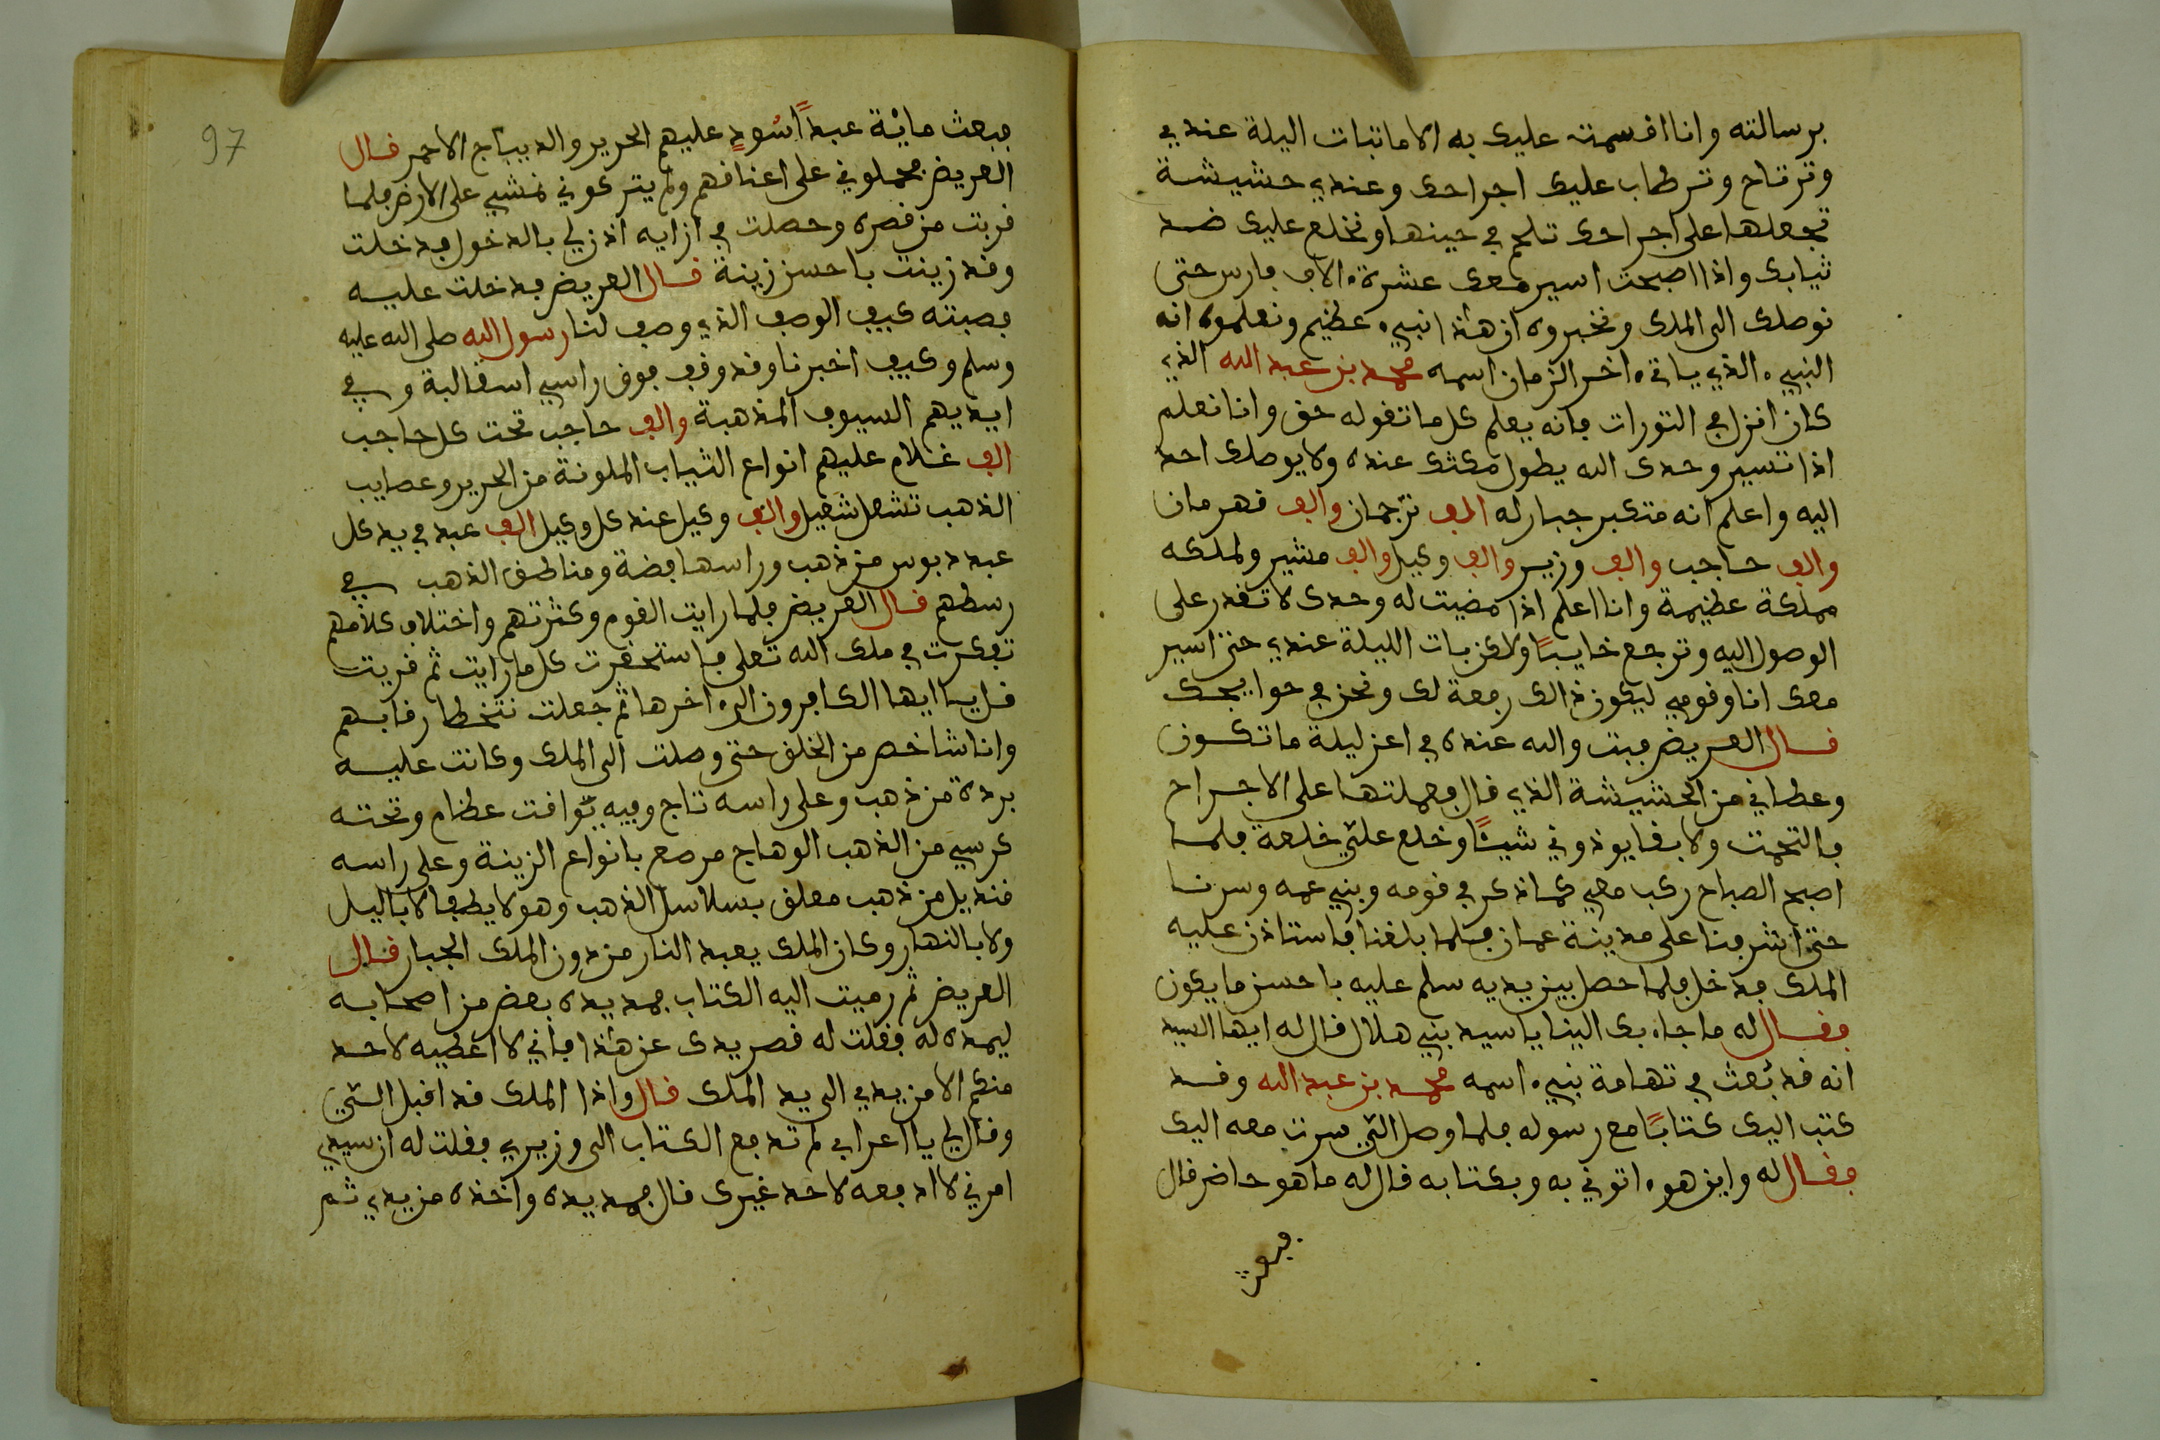 برسالته وانا افسمت عليك به الا ما تبات اليلة عندي
وترتاح وترطاب عليك اجراحك وعندي حشيشة
تجعلها على اجراحك تلحم في حينها ونخلع عليك ضد
ثيابك واذا اصبحت اسير معك عشرة الاف فارس حتى
نوصلك الى الملك ونخبروه ان هذا نبيء عظيم ونعلموه انه
النبيء الذي ياتي اخر الزمان اسمه محمد بن عبد الله الذي
كان انزل في التورات فانه يعلم كل ما تقوله حق وانا نعلم
اذا تسير وحدك الله يطول مكثك عنده ولا يوصلك احد
اليه واعلم انه متكبر جبار له الف ترجمان والف قهرمان
والف حاجب والف وزير والف وكيل والف مشير ولملكه
مملكة عظيمة وانا اعلم اذا مضيت له وحدك لا تقدر على
الوصول اليه وترجع خايبا ولاكن بات الليلة عندي حتى اسير
معك انا وقومي ليكون ذالك رفعة لك ونحن في حوايجك
قال العريض فبت والله عنده في اعز ليلة ما تكون
وعطاني من الحشيشة الذي قال فعملتها على الاجراح
فالتحمت ولا بقا يوذوني شيئا وخلع عليّ خلعة فلما
اصبح الصباح ركب معي كما ذكر في قومه وبني عمه وسرنا
حتى اشرفنا على مدينة عمان فلما بلغنا فاستاذن عليه
الملك فدخل فلما حصل بين يديه سلم عليه باحسن ما يكون
فقال له ما جاء بك الينا يا سيد بني هلال قال له ايها السيد
انه قد بُعث في تهامة نبيء اسمه محمد بن عبد الله وقد
كتب اليك كتابا مع رسوله فلما وصل اليّ سرت معه اليك
فقال له واين هو اتوني به وبكتابه قال له ما هو حاضر قال
97
فبعث ماية عبدا اسود عليهم الحرير والديباج الاحمر قال
العريض فحملوني على اعناقهم ولم يتركوني نمشي على الارض فلما
قربت من قصره وحصلت في ازايه اذن لي بالدخول فدخلت
وقد زينت باحسن زينة قال العريض فدخلت عليه
فصبته كيف الوصف الذي وصف لنا رسول الله صلى الله عليه
وسلم وكيف اخبرنا وقد وقف فوق راسي اسقالبة وفي
ايديهم السيوف المذهبة والف حاجب تحت كل حاجب
الف غلام عليهم انواع الثياب الملونة من الحرير وعصايب
الذهب تشعل شعيل والف وكيل عند كل وكيل الف عبد في يد كل
عبد دبوس من ذهب وراسها فضة ومناطق الذهب في
رسطهم قال العريض فلما رايت القوم وكثرتهم واختلاف كلامهم
تفكرت في ملك الله تعلى فاستحقرت كل ما رايت ثم قريت
قل يا ايها الكافرون الى اخرها ثم جعلت نتخطا رقابهم
وانا شاخص من الخلق حتى وصلت الى الملك وكانت عليه
بردة من ذهب وعلى راسه تاج وفيه يوافت عظام وتحته
كرسي من الذهب الوهاج مرصع بانواع الزينة وعلى راسه
قنديل من ذهب معلق بسلاسل الذهب وهو لا يطفا لا باليل
ولا بالنهار وكان الملك يعبد النار من دون الملك الجبار قال
العريض ثم رميت اليه الكتاب فمد يده بعض من اصحابه
ليمده له فقلت له قصر يدك عن هذا فاني لا اعطيه لاحد
منكم الا من يدي الى يد الملك قال واذا الملك قد اقبل اليّ
وقال لي يا اعرابي لم تدفع الكتاب الى وزيري فقلت له ان سيدي
امرني لا ادفعه لاحد غيرك قال فمد يده واخذه من يدي ثم